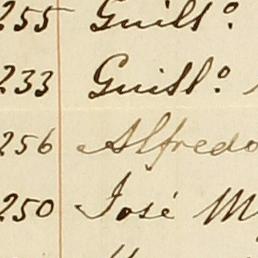 255 Guill.º
233 Guill.º
256 Alfredo
250 José M